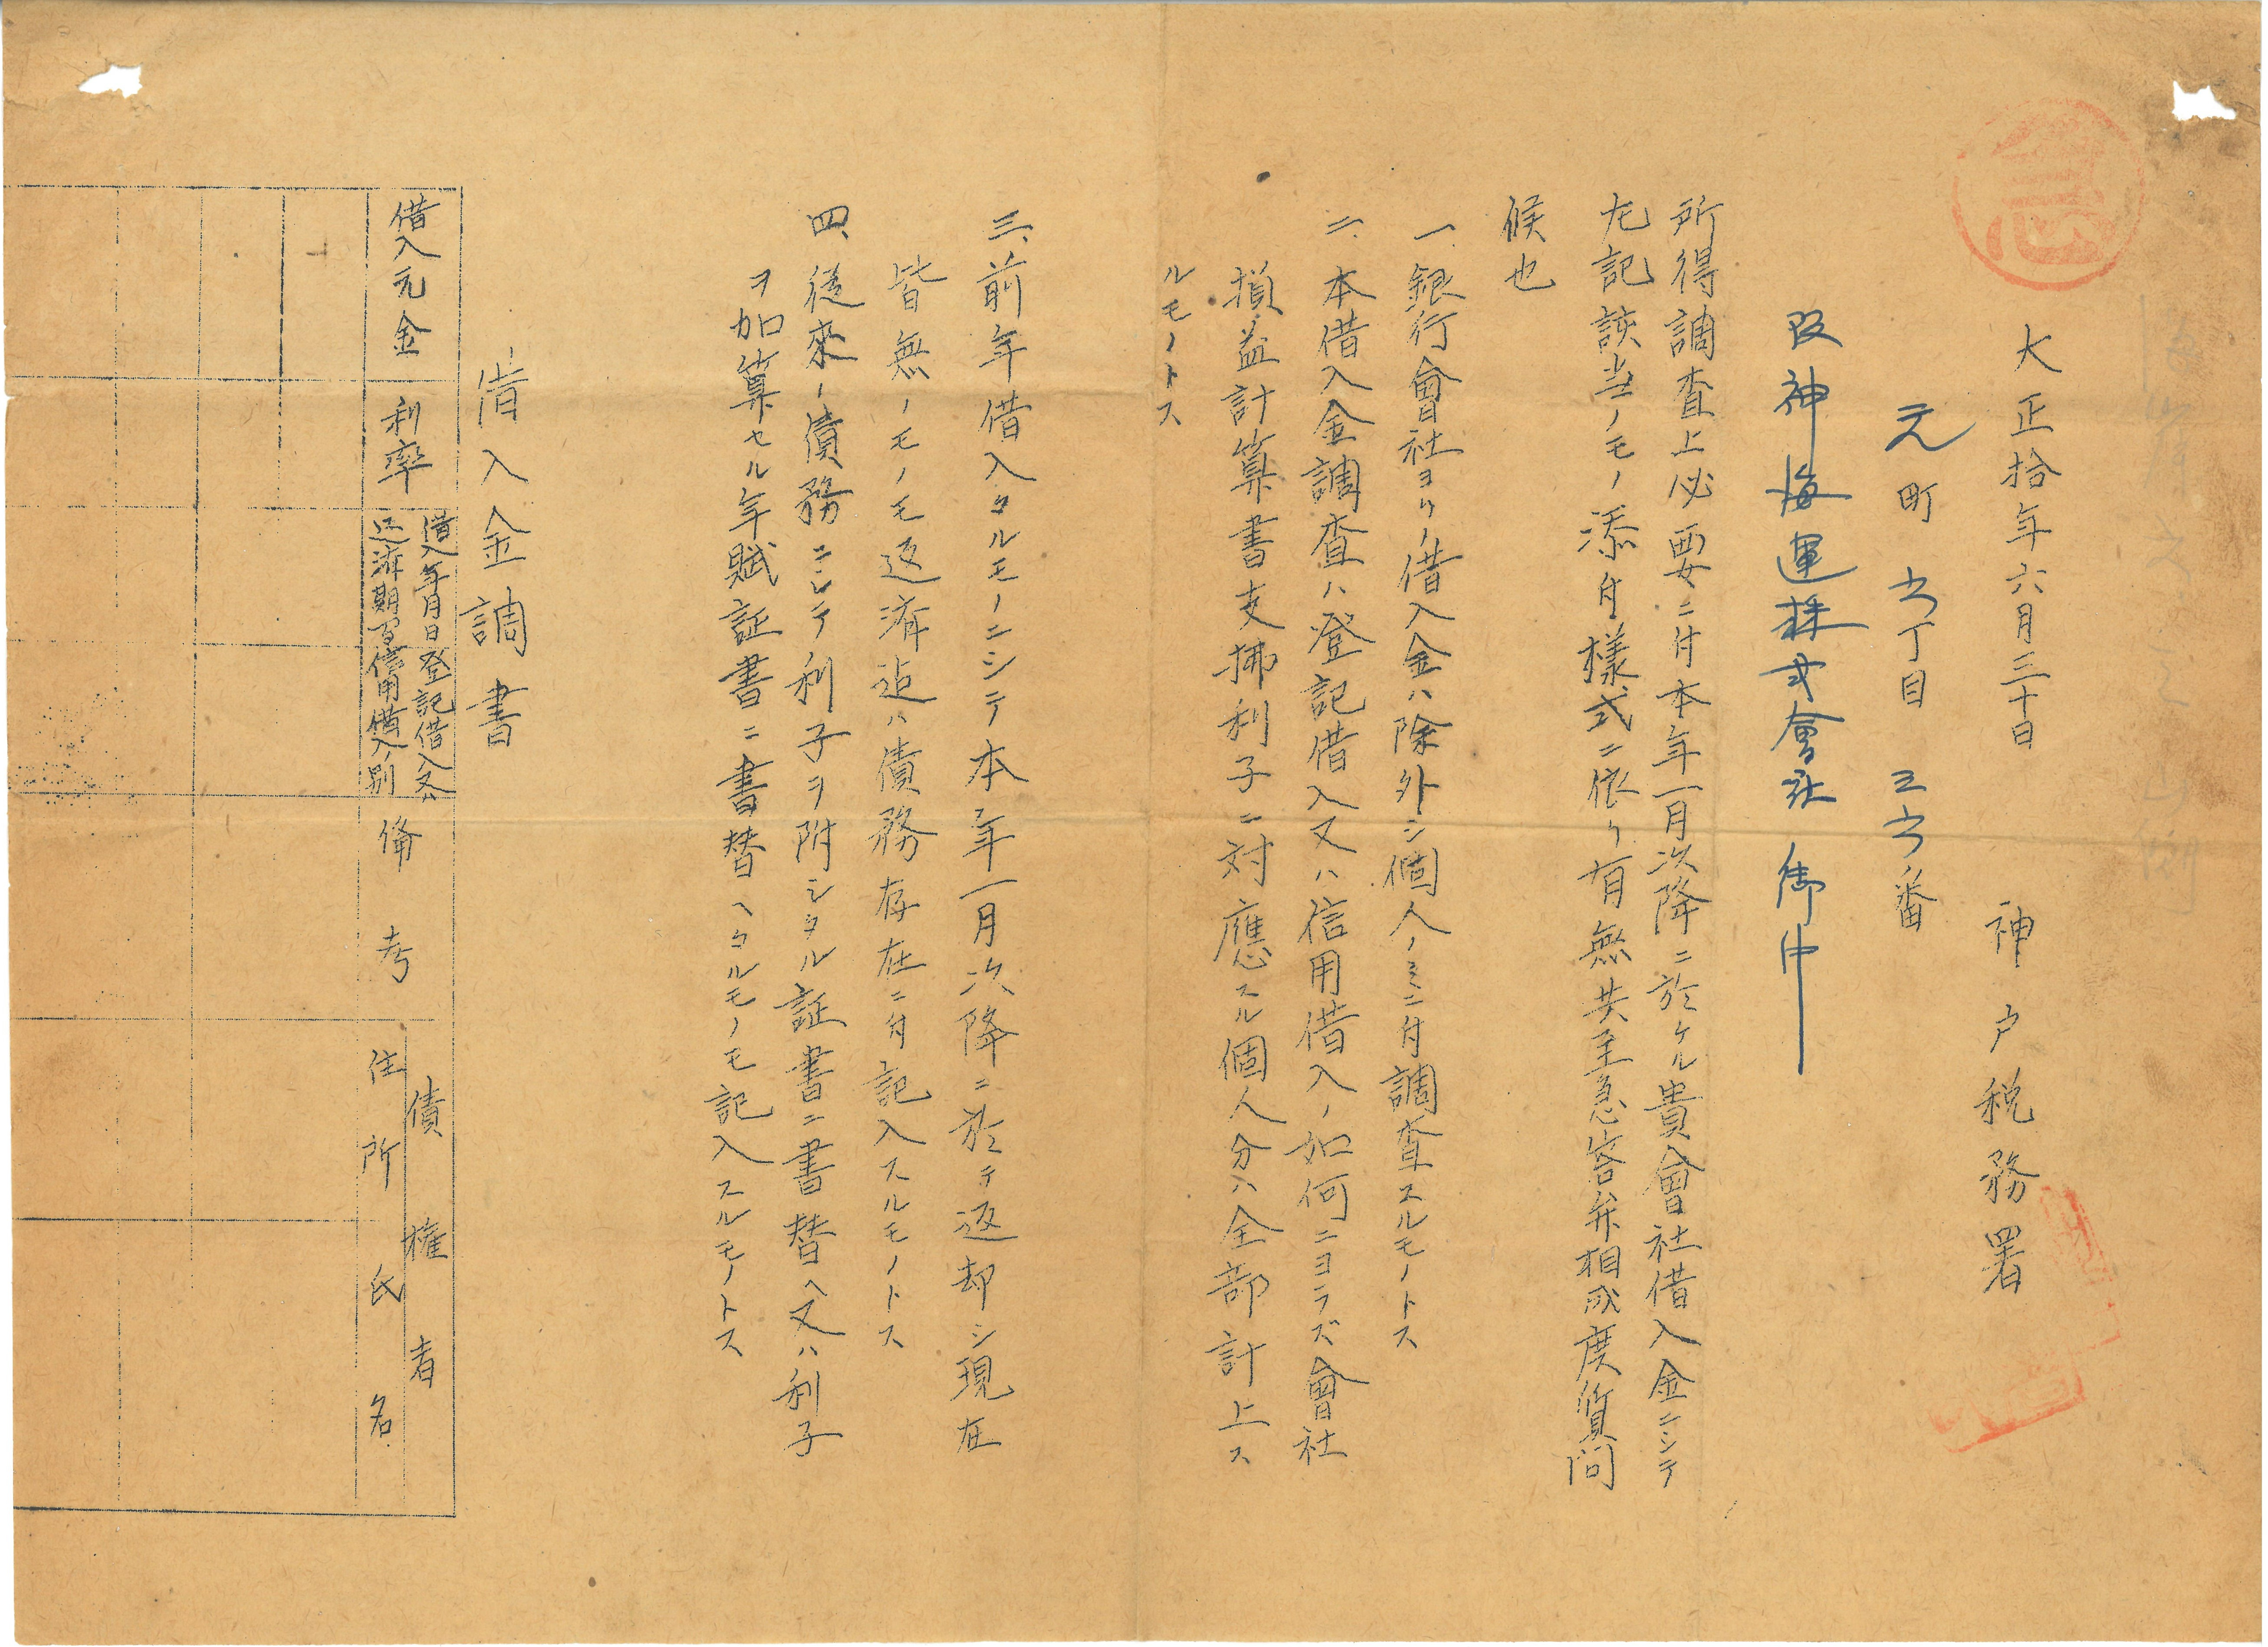 急
大正拾年六月三十日　神戸税務署
元町六丁目三六番
阪神海運株式會社御中
所得調査上必要ニ付本年一月次降ニ於ケル貴會社借入金ニシテ
左記該当ノモノ添付様式ニ依リ有無共至急答弁相成度質問
候也
一、銀行會社ヨリノ借入金ハ除外シ個人ノミニ付調査スルモノトス
二、本借入金調査ハ登記借入又ハ信用借入ノ如何ニヨラズ會社
損益計算書支拂利子ニ対應スル個人分ハ全部計上ス
ルモノトス
三、前年借入タルモノニシテ本年一月次降ニ於テ返却シ現在
皆無ノモノモ返済迠ハ債務存在ニ付記入スルモノトス
四、従來ノ債務ニシテ利子ヲ附シタル証書ニ書替ヘ又ハ利子
ヲ加算セル年賦証書ニ書替ヘタルモノモ記入スルモノトス
借入金調書
借入元金
利率
借入年月日登記借入又ハ
返済期月信用借入ノ別
備考
債權者
住所氏名